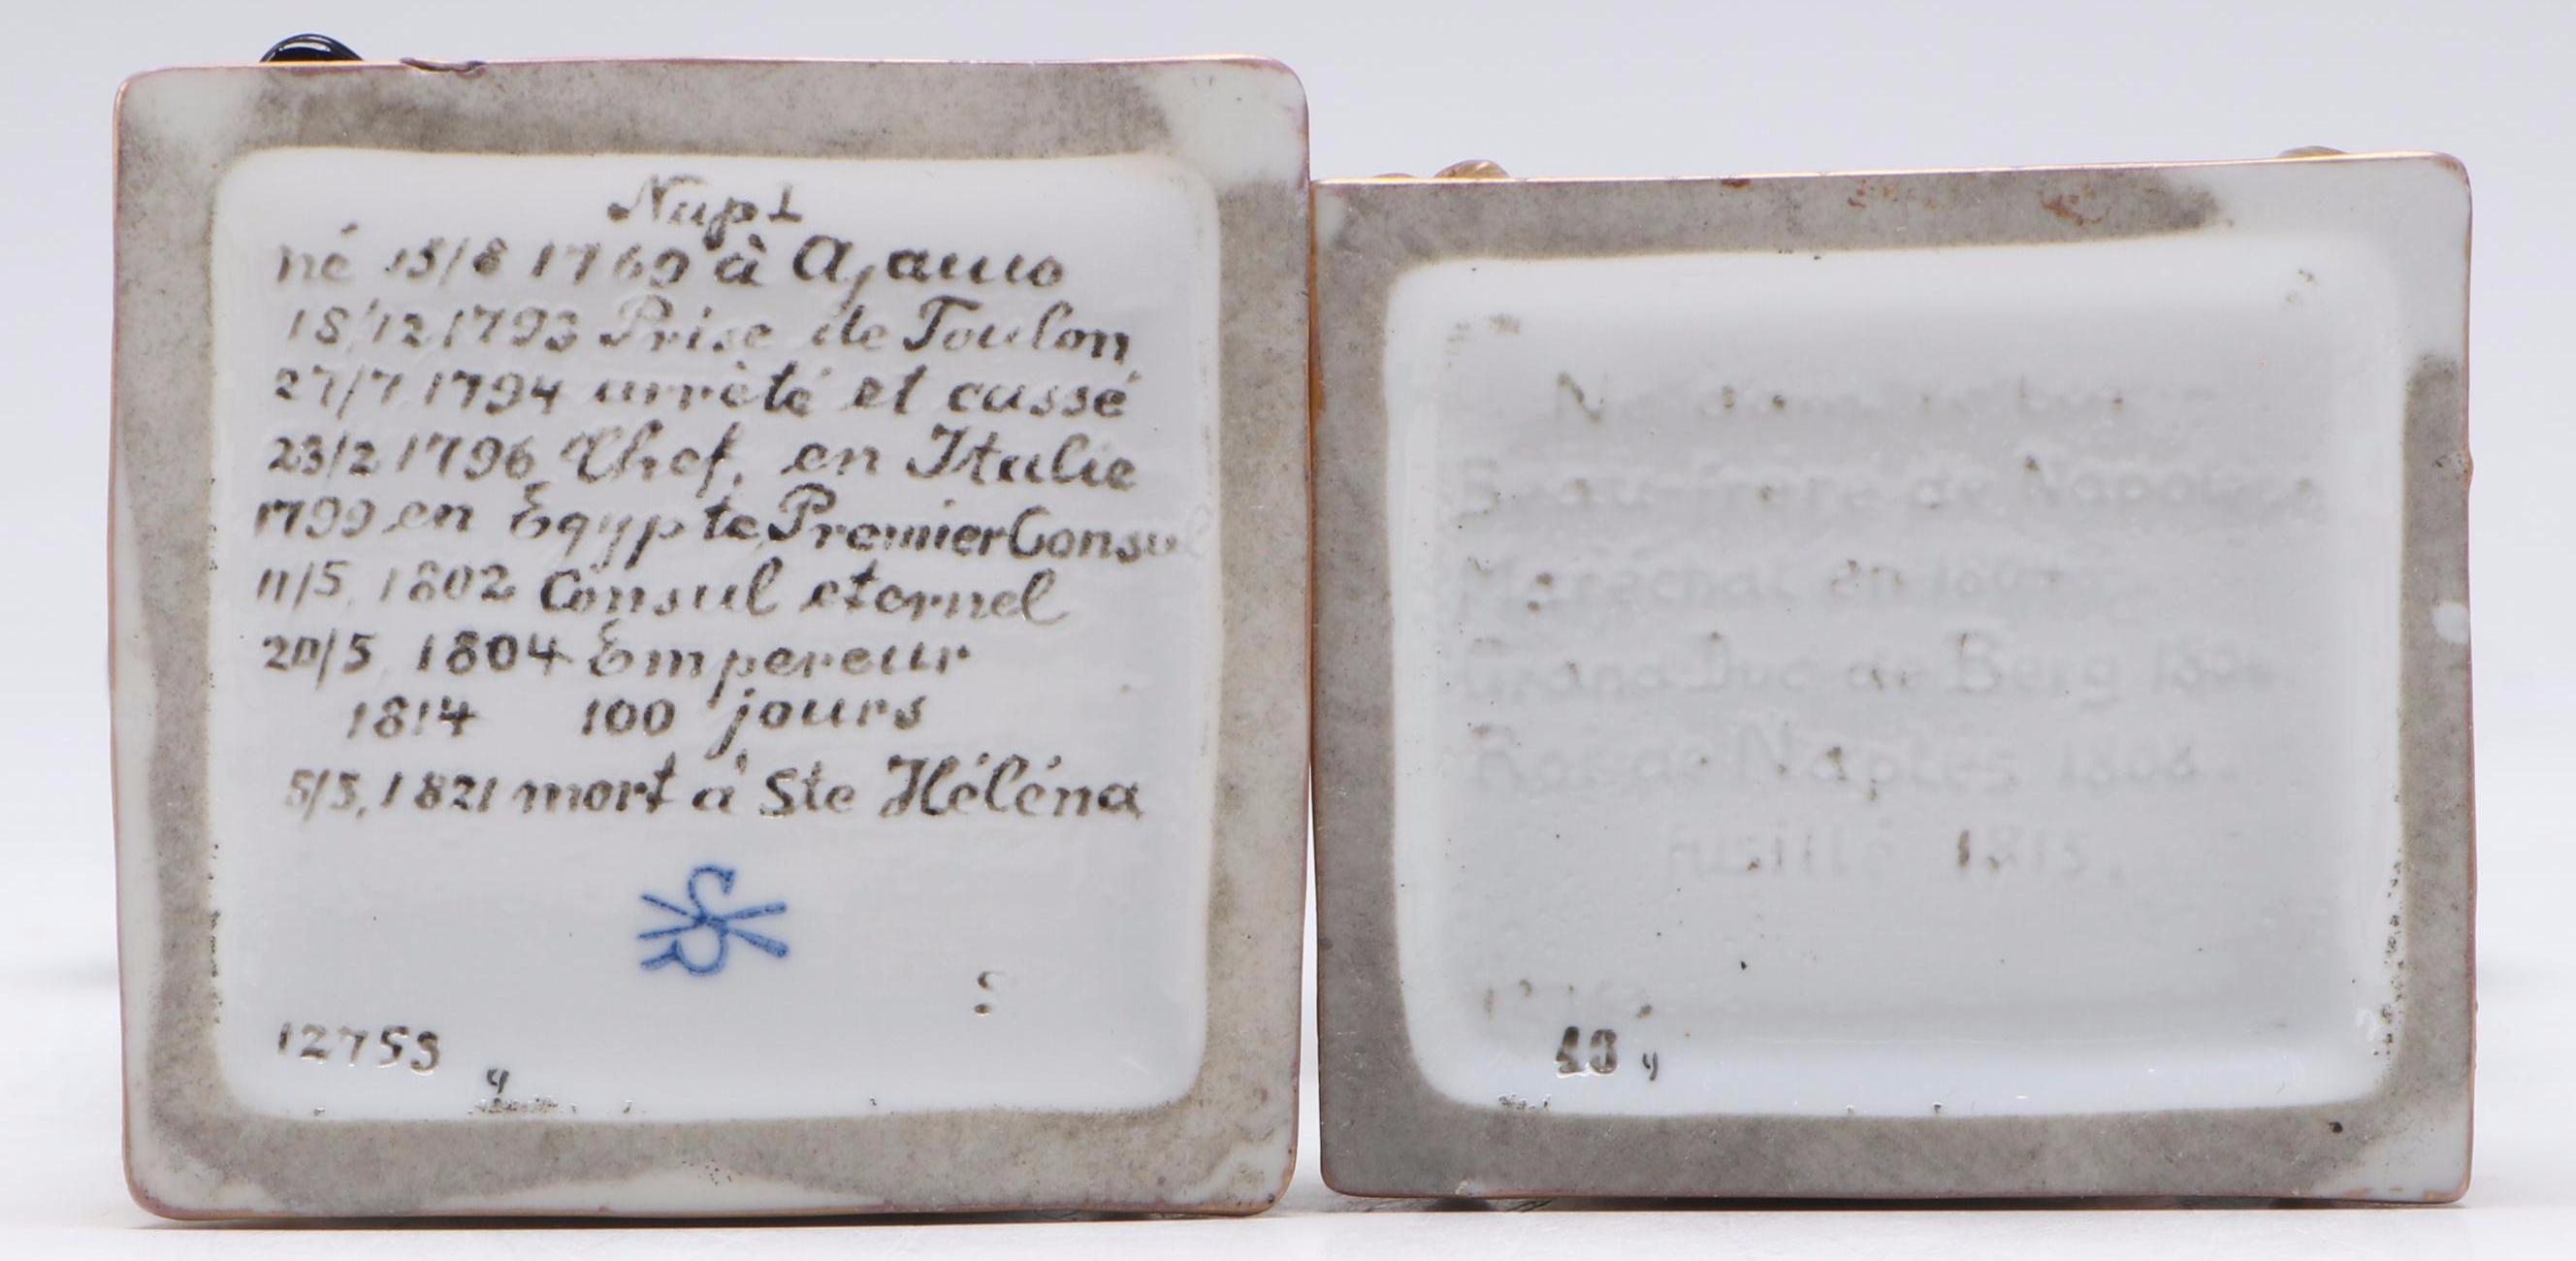 Napl
né 15/8 1769 à Ajaccio
18/12 1793 Prise de Toulon
27/7 1794 arrèté et cassé
23/2 1796 Chef, en Italie
1799 en Egypte Premier Consul
11/5, 1802 Consul eternel
20/5, 1804 Empereur
1814 100 jours
5/5, 1821 mort a' Ste Héléna
SR
S
12753
y
Beau-frere de Napoleon
Marechal en
Grand Duc de Berg
Naples 1808.
fusillé 1815.
43 y